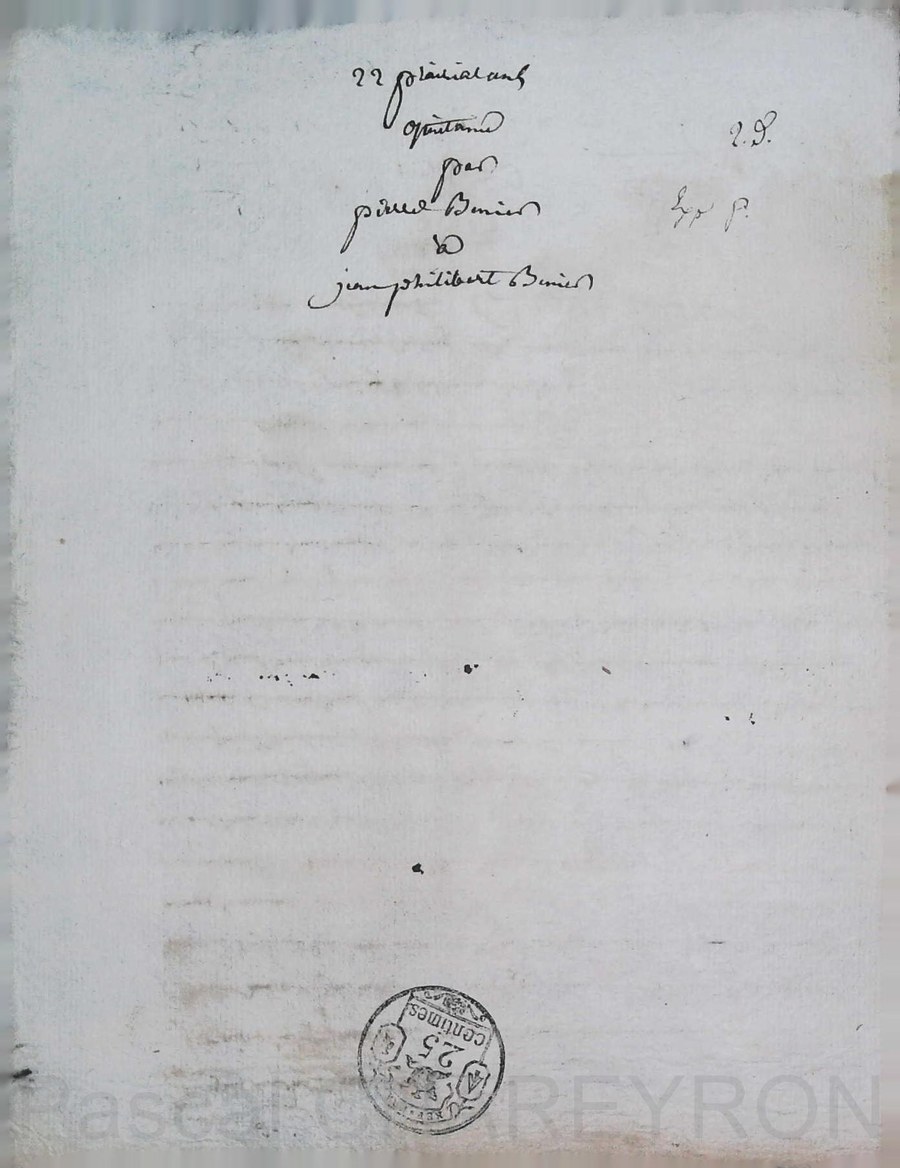 22 prairial an
quitance
par
pierre Bernier
a
jean philibert Bernier
2. d.
Exp p.
25
centimes
Pascal CHAREYRON